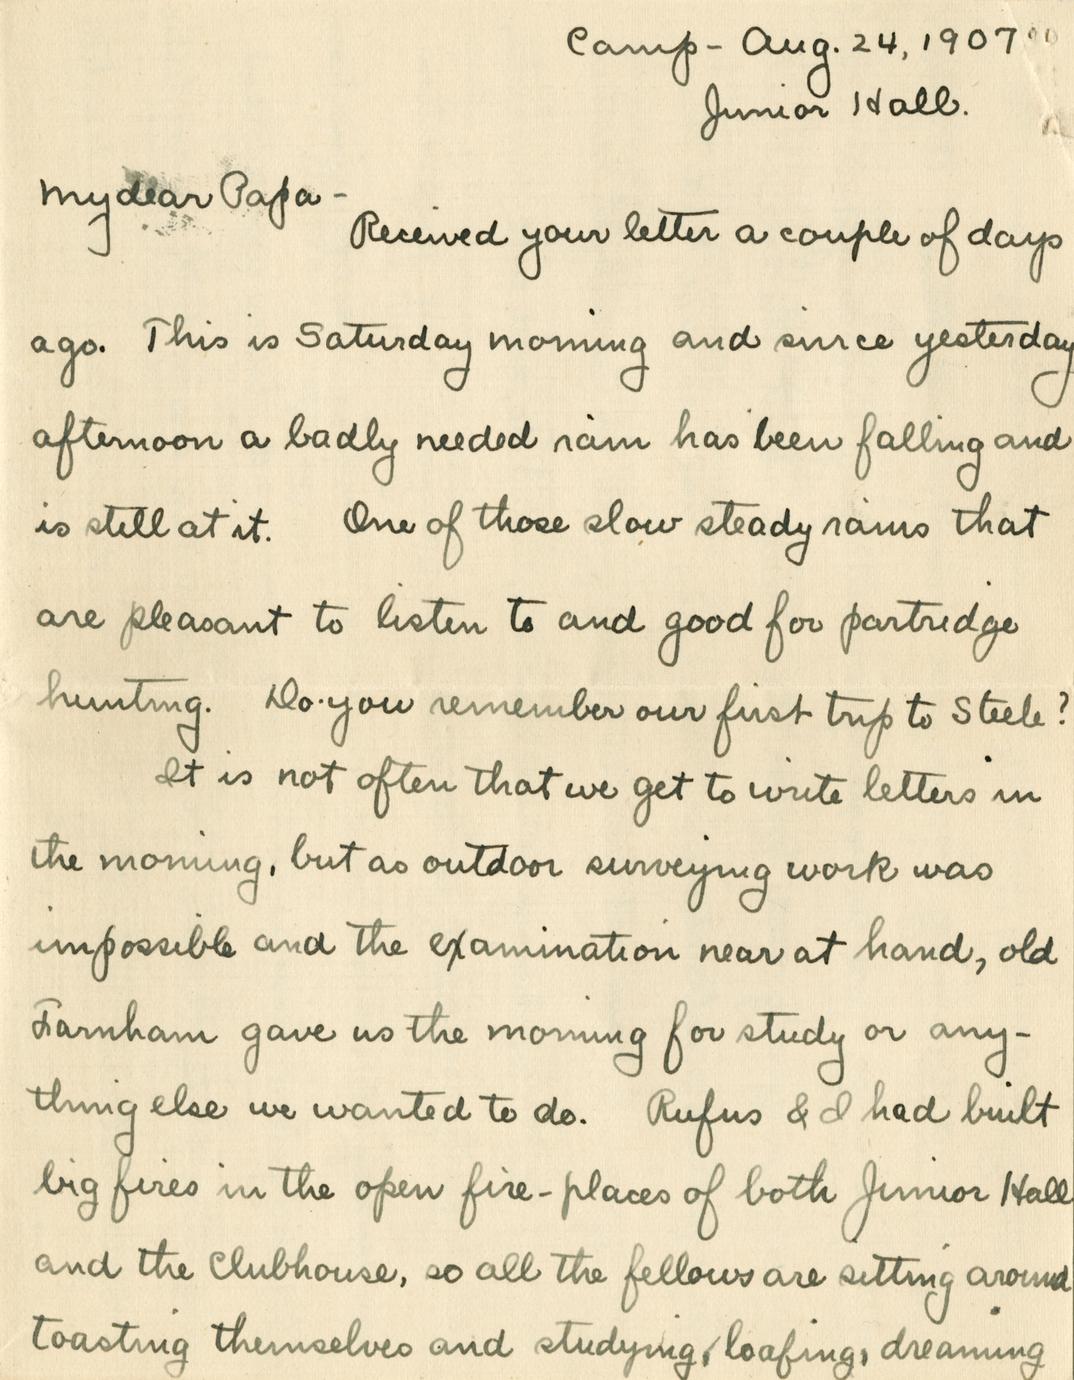 Camp - Aug. 24, 1907
Junior Hall.
My dear Papa -
Received your letter a couple of days
ago. This is Saturday morning and since yesterday
afternoon a badly needed rain has been falling and
is still at it. One of those slow steady rains that
are pleasant to listen to and good for partridge
hunting. Do you remember our first trip to Steele?
It is not often that we get to write letters in
the morning, but as outdoor surveying work was
impossible and the examination near at hand, old
Farnham gave us the morning for study or any-
thing else we wanted to do. Rufus & I had built
big fires in the open fire-places of both Junior Hall
and the Clubhouse, so all the fellows are sitting around
toasting themselves and studying, loafing, dreaming